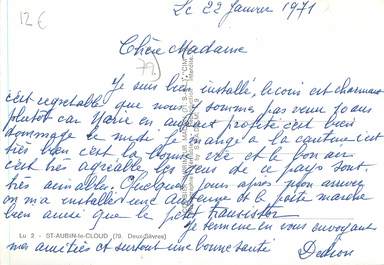 12€
Le 22 Janvier 1971
Chère Madame
79
Je suis bien installé, le coin est charmant
c'est regretable que nous sommes pas venu 10 ans
plutôt car Marie en aurait profité c'est bien
dommage le midi je mange a la cantine c'est
très bien c'est la bonne vie et le bon air
c'est très agréable les gens de ce pays sont
très aimable. Quelques jours après mon arrivée
on m'a installer une antenne et le poste marche
bien ainsi que le petit transistor
Je termine en vous envoyant
Lu 2 - ST-AUBIN-le-CLOUD (79. Deux-Sèvres)
mes amitiés et surtout une bonne santé